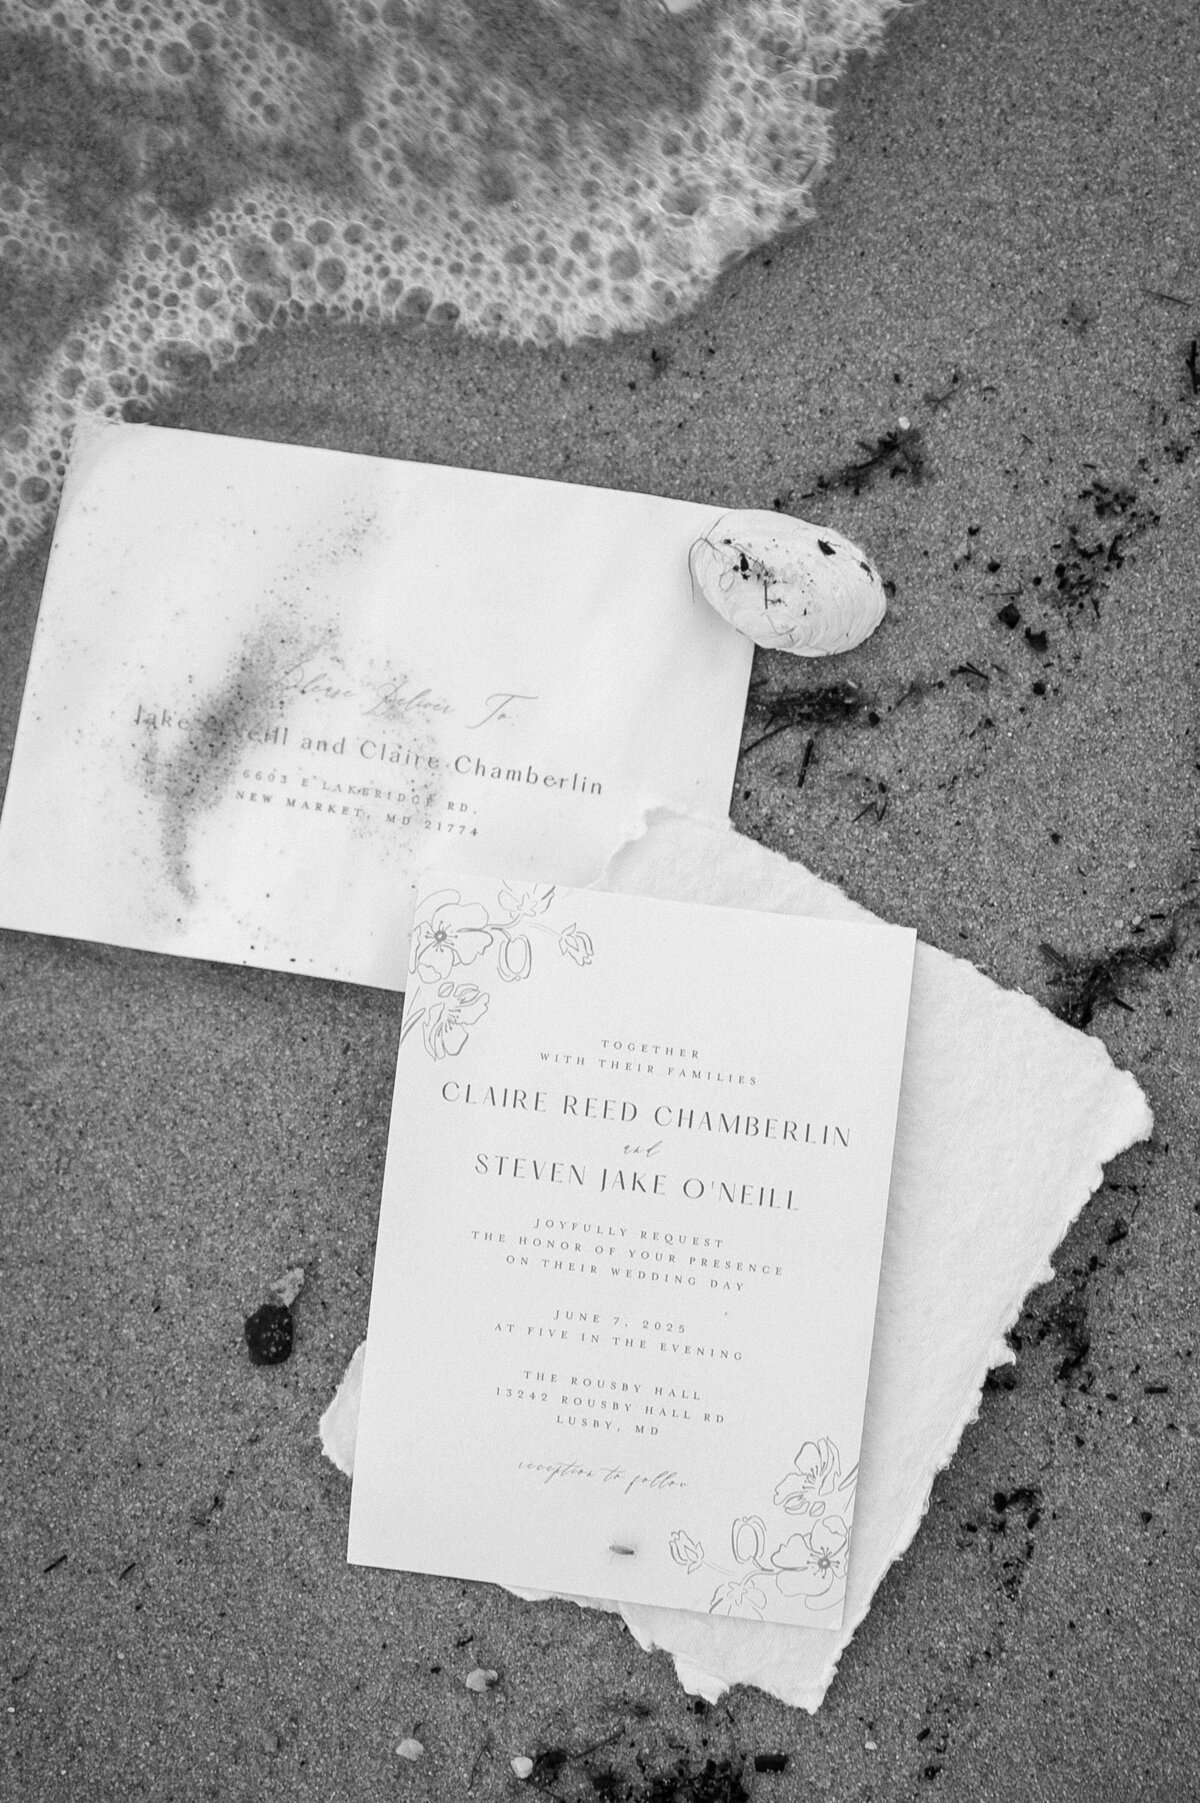 Please Deliver To:
Jake O'Neill and Claire Chamberlin
6603 E LAKERIDGE RD.
NEW MARKET, MD 21774
TOGETHER
WITH THEIR FAMILIES
CLAIRE REED CHAMBERLIN
and
STEVEN JAKE O'NEILL
JOYFULLY REQUEST
THE HONOR OF YOUR PRESENCE
ON THEIR WEDDING DAY
JUNE 7, 2025
AT FIVE IN THE EVENING
THE ROUSBY HALL
13242 ROUSBY HALL RD
LUSBY, MD
reception to follow